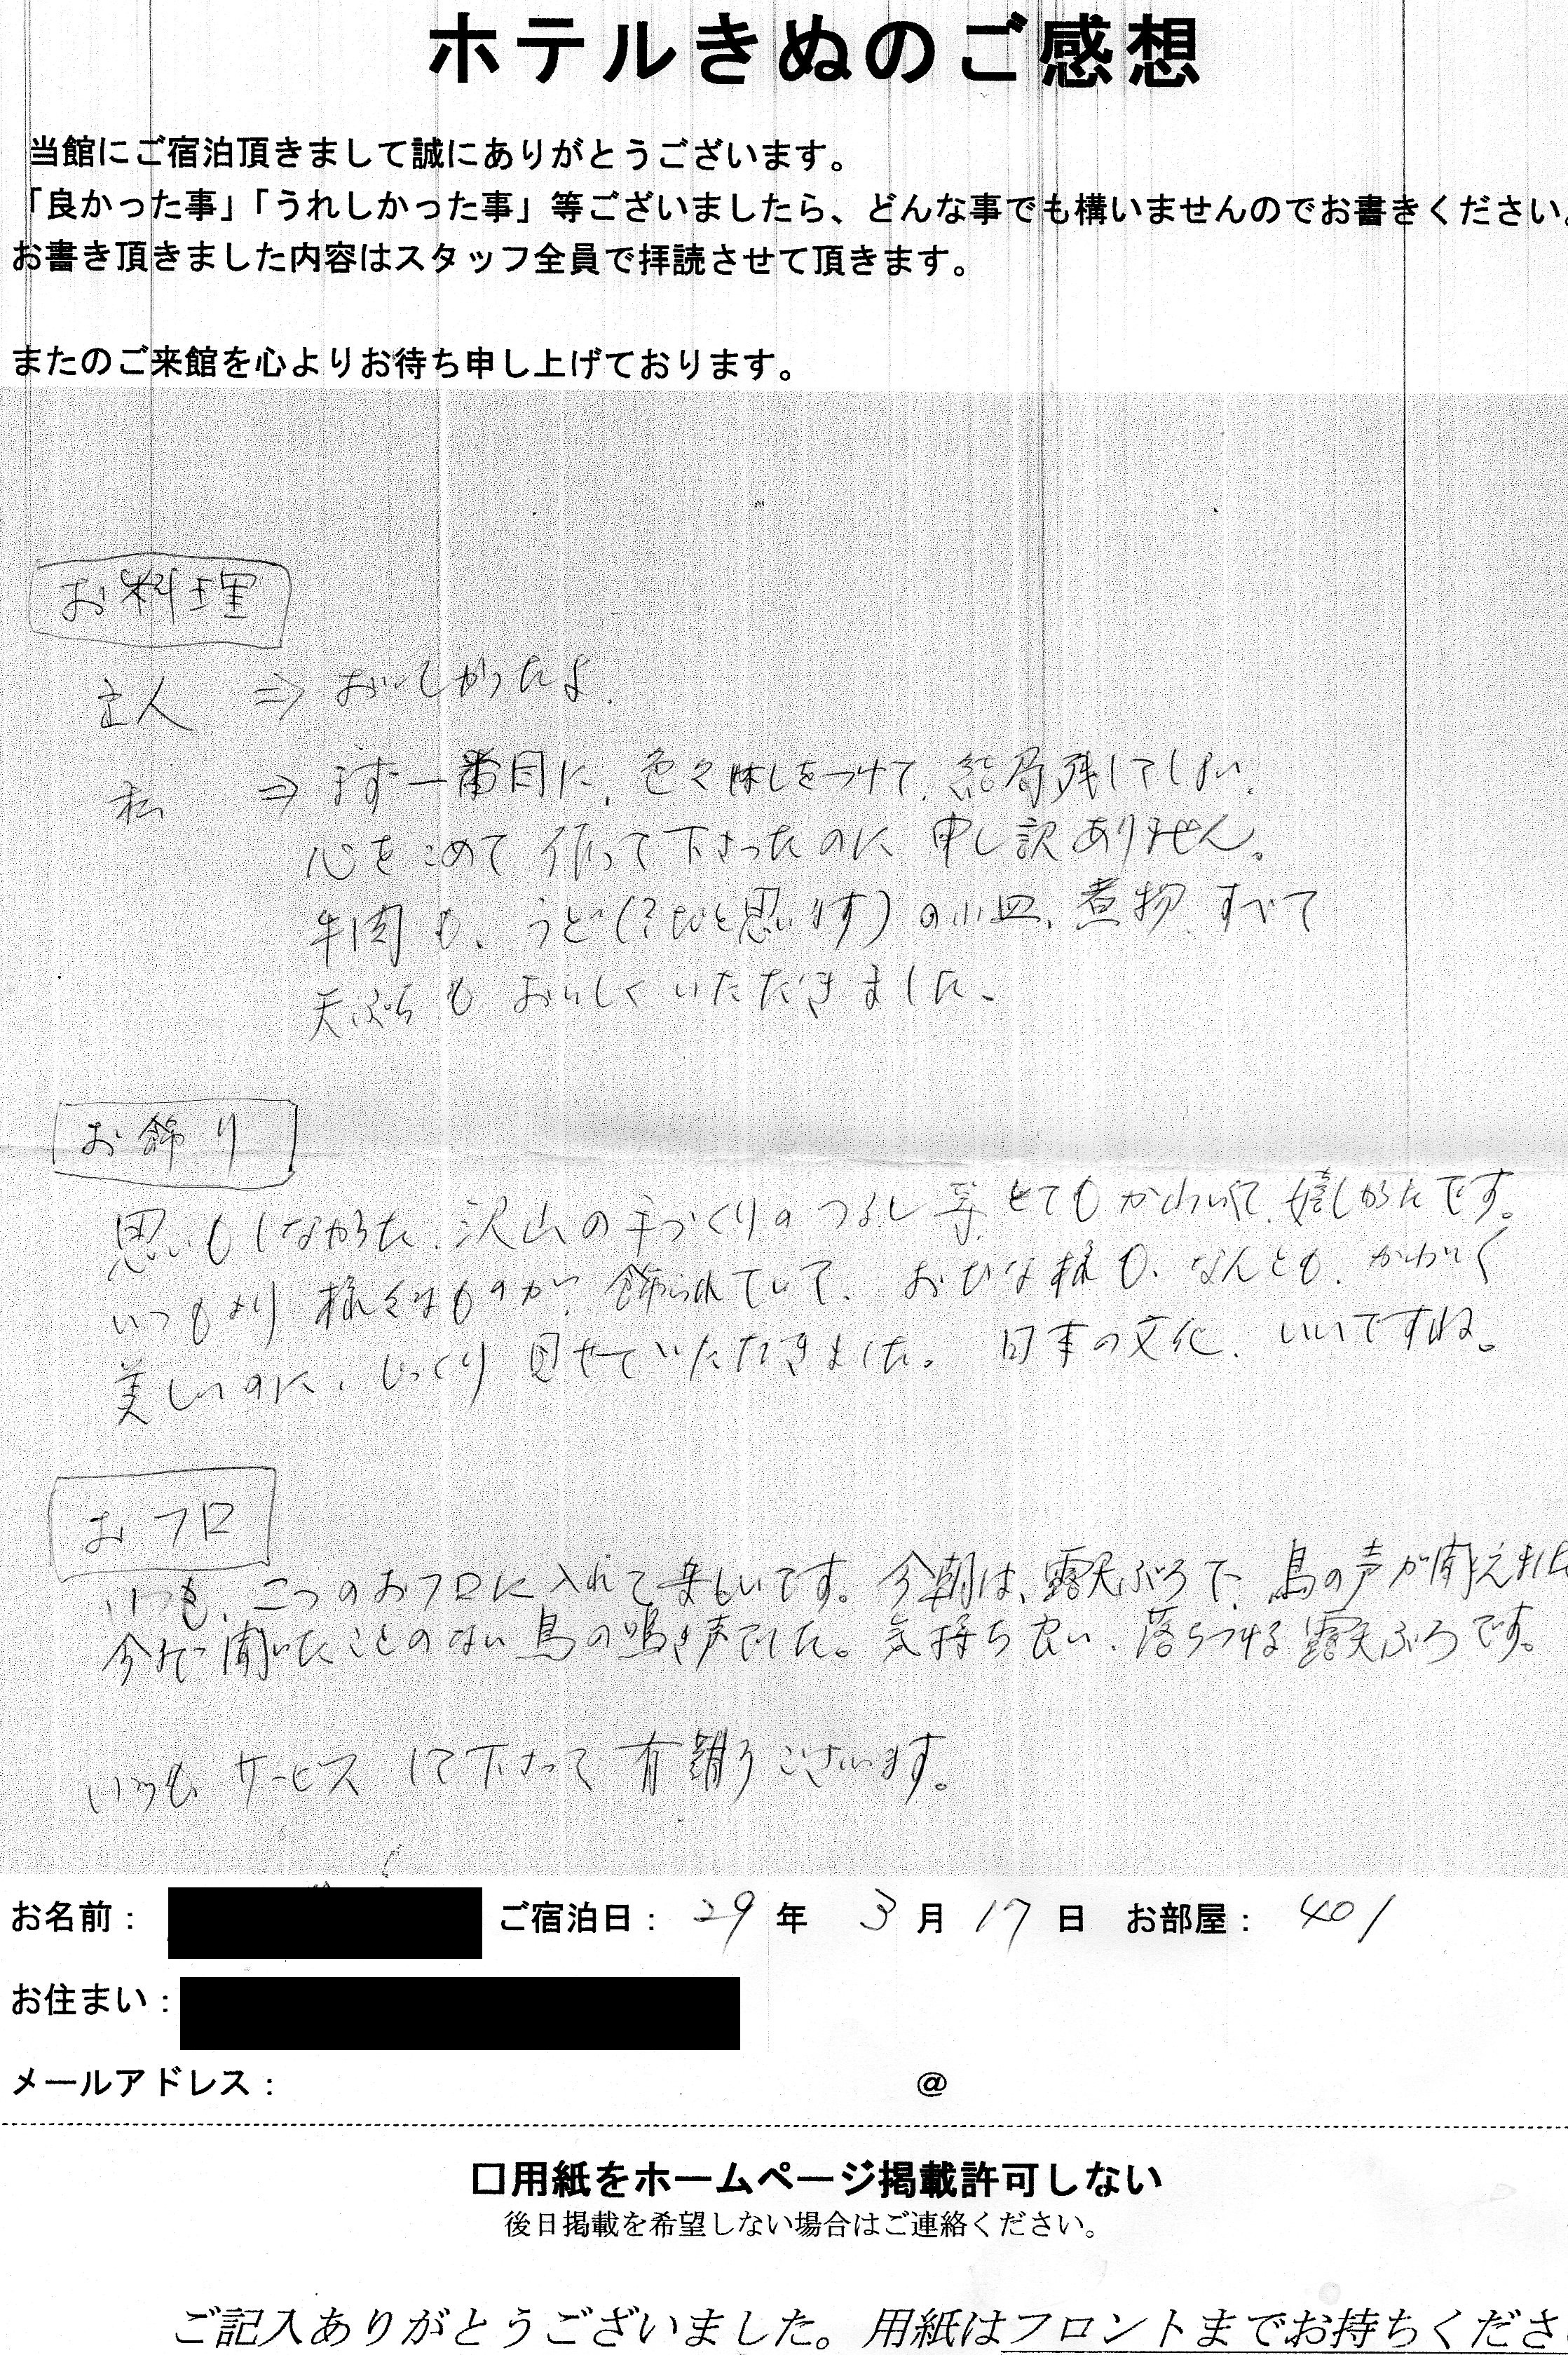 ホテルきぬのご感想
当館にご宿泊頂きまして誠にありがとうございます。
「良かった事」「うれしかった事」等ございましたら、どんな事でも構いませんのでお書きください。
お書き頂きました内容はスタッフ全員で拝読させて頂きます。
またのご来館を心よりお待ち申し上げております。
お料理
主人 ⇒ おいしかったよ。
私 ⇒ まず一番目に、色々はしをつけて、結局残してしまい、
心をこめて作って下さったのに申し訳ありません。
牛肉も、うど(?だと思います)の小皿、煮物、すべて
天ぷらもおいしくいただきました。
お飾り
思いもしなかった、沢山の手づくりのつるし等、とてもかわいくて、嬉しかったです。
いつもより様々なものが、飾られていて、おひな様も、なんとも、かわいく
美しいのに、じっくり見せていただきました。日本の文化、いいですね。
おフロ
いつも、二つのおフロに入れて楽しいです。今朝は、露天ぶろで、鳥の声が聞えました
今まで聞いたことのない鳥の鳴き声でした。気持ち良い、落ちつける露天ぶろです。
いつも、サービスして下さって有難うございます。
お名前： ご宿泊日： 29 年 3 月 17 日 お部屋： 401
お住まい：
メールアドレス： @
□用紙をホームページ掲載許可しない
後日掲載を希望しない場合はご連絡ください。
ご記入ありがとうございました。用紙はフロントまでお持ちくださ